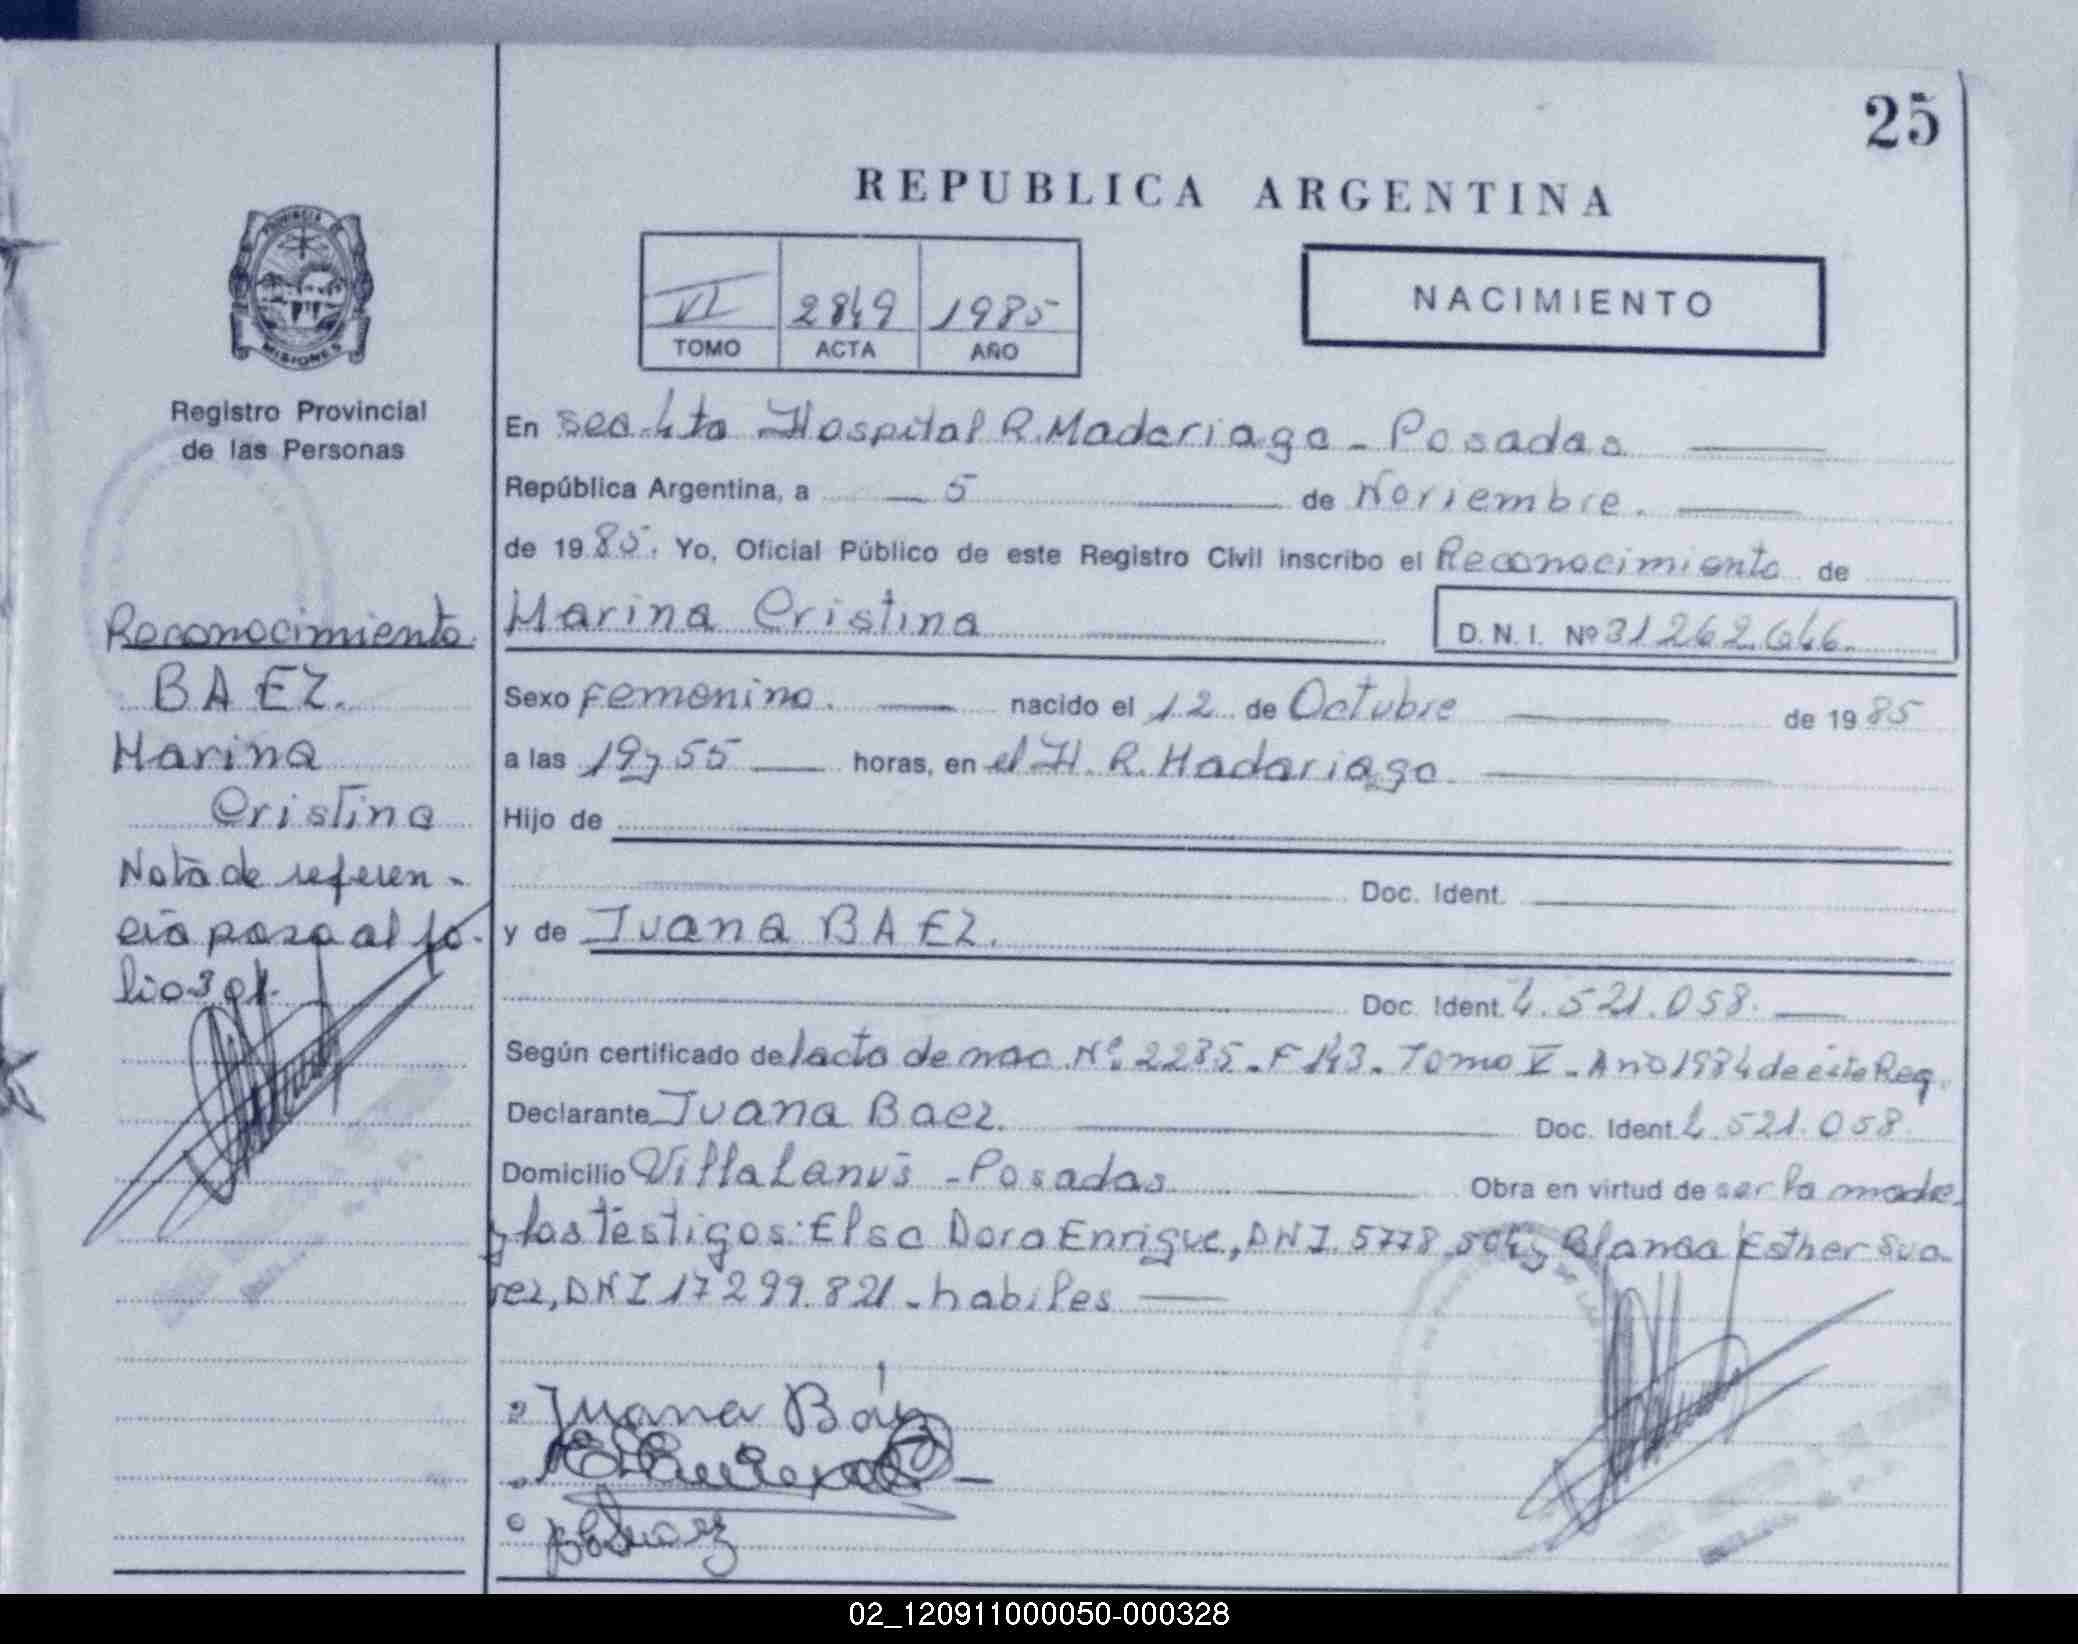 25
REPUBLICA ARGENTINA
VI 2849 1985
TOMO ACTA AÑO
NACIMIENTO
PROVINCIA DE
MISIONES
Registro Provincial
de las Personas
Reconocimiento
BAEZ.
Marina
Cristina
Nota de referen-
cia pasa al fo-
lio
En sec. 4ta Hospital R. Madariaga - Posadas
República Argentina, a 5 de Noviembre.
de 1985. Yo, Oficial Público de este Registro Civil inscribo el Reconocimiento de
Marina Cristina D.N.I. Nº 31262.646.
Sexo femenino. nacido el 12 de Octubre de 1985
a las 19y55 horas, en el H. R. Madariaga.
Hijo de
Doc. Ident.
y de Juana BAEZ.
Doc. Ident. 4.521.058.
Según certificado de lacta de nac. Nº 2235. F 143. Tomo V. Año 1984 de éste Reg.
Declarante Juana Baez. Doc. Ident. 4.521.058
Domicilio Villa Lanús - Posadas Obra en virtud de ser la madre
y los testigos: Elsa Dora Enrique, DNI. 5778 504 y Blanca Esther Sua-
rez, DNI 17299.821. habiles
Juana Báez
Suarez
02_120911000050-000328